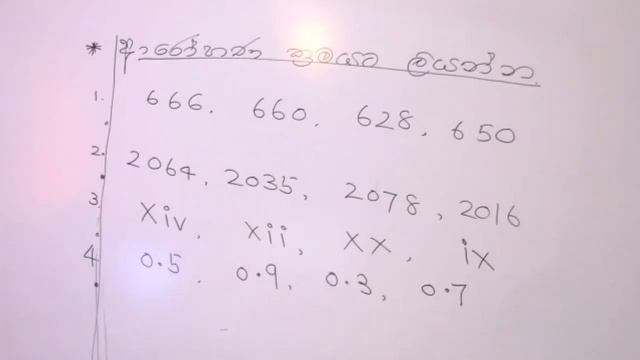 * ආරෝහණ ක්‍රමයට ලියන්න.
1. 666, 660, 628, 650
2. 2064, 2035, 2078, 2016
3. Xiv, Xii, XX, iX
4. 0.5, 0.9, 0.3, 0.7